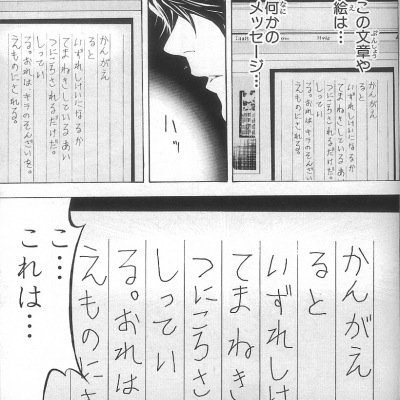 この文章や
絵は…
何かの
メッセージ…
かんがえ
ると
いずれしけいになるか
てまねきしているあい
つにころされるだけだ。
しってい
る。おれはキラのそんざいを。
えものにされる。
ハッ
かんがえ
ると
いずれしけいになるか
てまねきしているあい
つにころされるだけだ。
しってい
る。おれはキラのそんざいを。
えものにされる。
かんがえ
ると
いずれしけ
てまねき
つにころさ
しってい
る。おれは
えものにさ
こ…
これは…